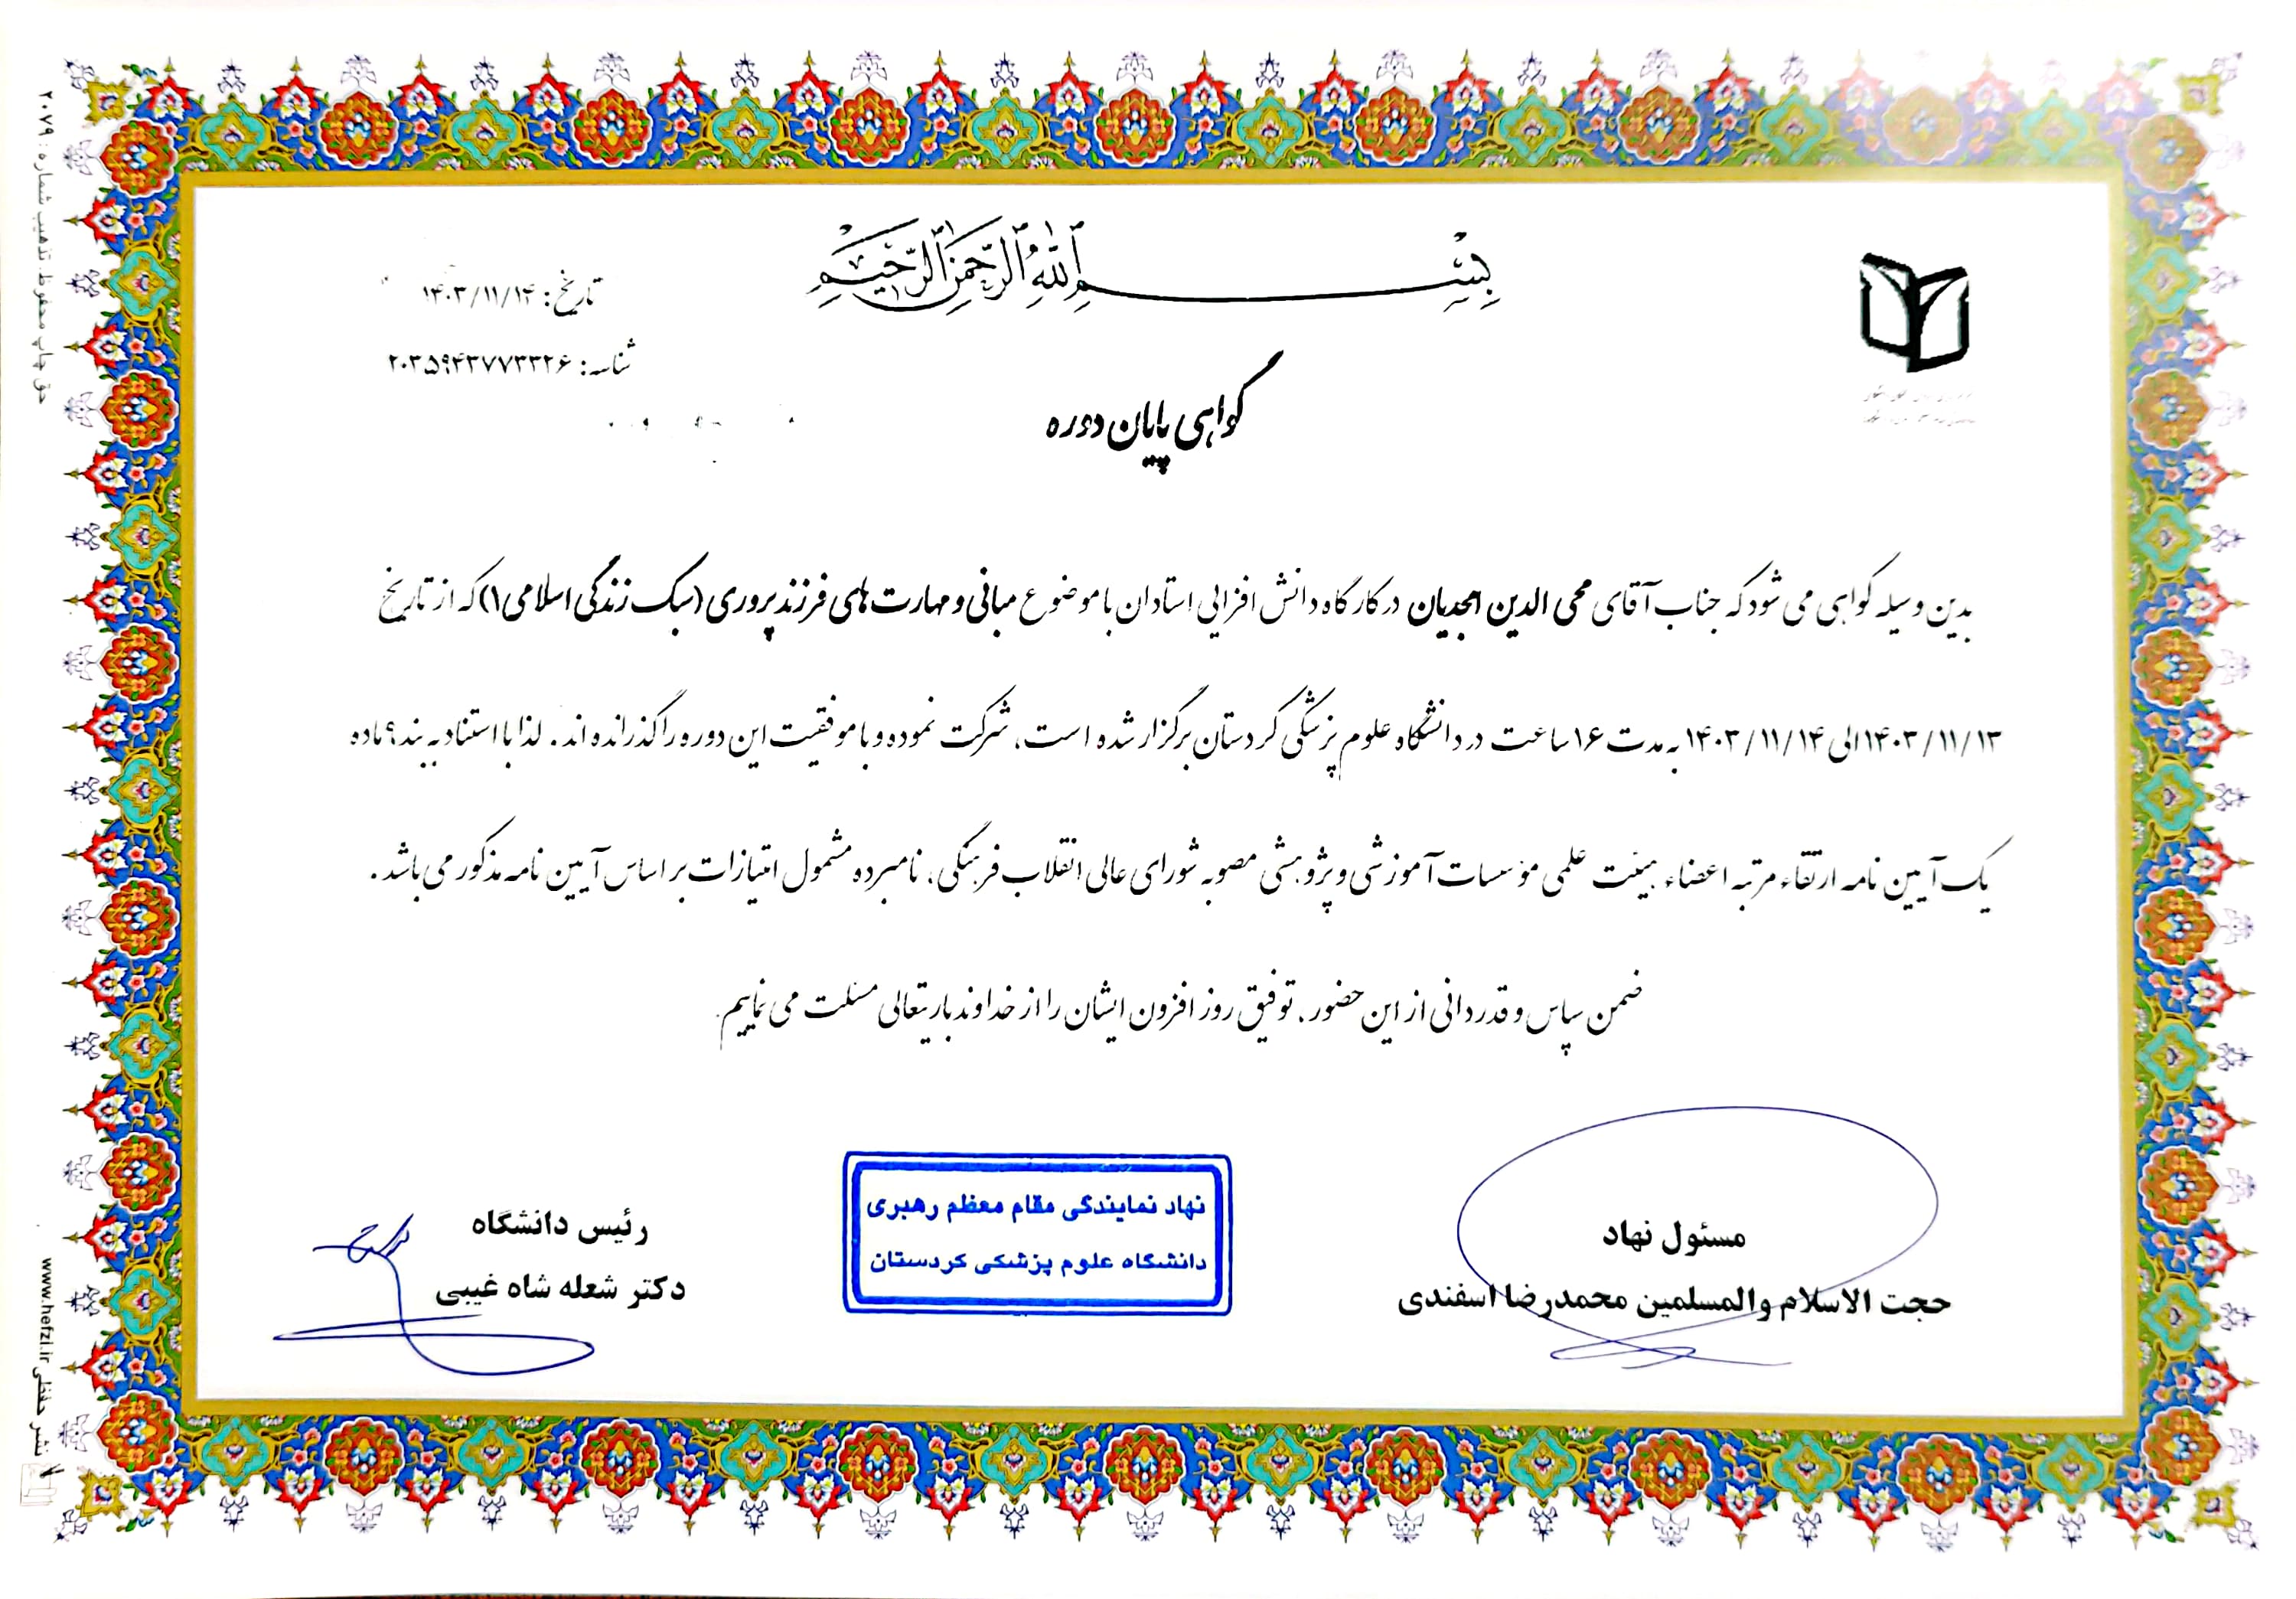 بِسْمِ اللهِ الرَّحْمنِ الرَّحيمِ
تاریخ: ۱۴۰۳/۱۱/۱۴
شناسه: ۲۰۳۵۹۴۳۷۷۳۳۲۶
گواهی پایان دوره
بدین وسیله گواهی می شود که جناب آقای محی الدین امجدیان در کارگاه دانش افزایی استادان با موضوع مبانی و مهارت های فرزندپروری (سبک زندگی اسلامی۱) که از تاریخ
۱۴۰۳/۱۱/۱۳ الی ۱۴۰۳/۱۱/۱۴ به مدت ۱۶ ساعت در دانشگاه علوم پزشکی کردستان برگزار شده است، شرکت نموده و با موفقیت این دوره را گذرانده اند. لذا با استناد به بند ۹ ماده
یک آیین نامه ارتقاء مرتبه اعضاء هیئت علمی مؤسسات آموزشی و پژوهشی مصوبه شورای عالی انقلاب فرهنگی، نامبرده مشمول امتیازات بر اساس آیین نامه مذکور می باشد.
ضمن سپاس و قدردانی از این حضور، توفیق روز افزون ایشان را از خداوند باریتعالی مسئلت می نماییم.
مسئول نهاد
حجت الاسلام والمسلمین محمدرضا اسفندی
نهاد نمایندگی مقام معظم رهبری
دانشگاه علوم پزشکی کردستان
رئیس دانشگاه
دکتر شعله شاه غیبی
حق چاپ محفوظ. تذهیب شماره: ۲۰۷۹
نشر حفظی www.hefzi.ir